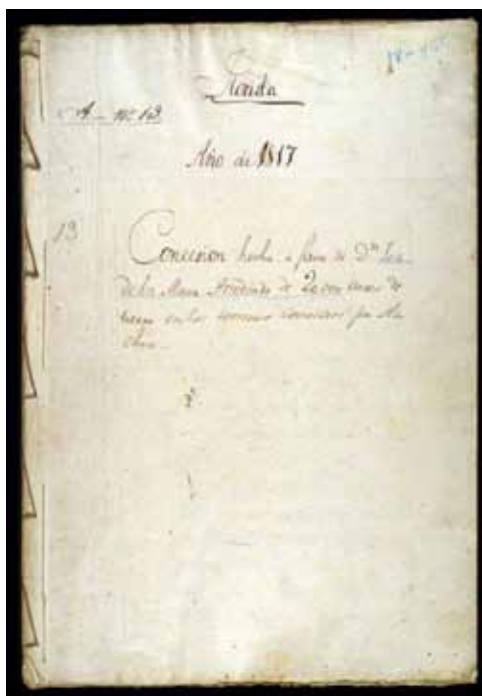 Florida
A - Nº 13
Año de 1817
13
Concesion hecha a favor de Dn
de la Maza Arredondo de 20000 acres de
tierra en los terrenos conocidos por Ala
chua